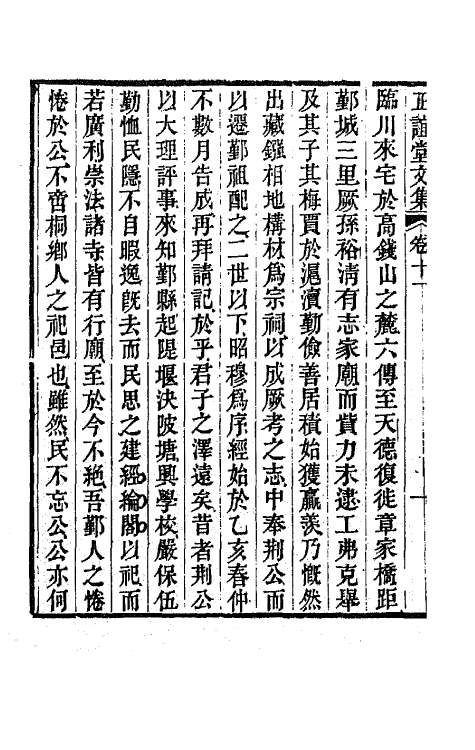 正誼堂文集 卷十一
臨川來宅於高錢山之麓六傳至天德復徙章家橋距
鄞城三里厥孫裕淸有志家廟而貲力未逮工弗克舉
及其子其梅賈於滬瀆勤儉善居積始獲贏羨乃慨然
出藏鏹相地構材爲宗祠以成厥考之志中奉荆公而
以遷鄞祖配之二世以下昭穆爲序經始於乙亥春仲
不數月告成再拜請記於乎君子之澤遠矣昔者荆公
以大理評事來知鄞縣起隄堰決陂塘興學校嚴保伍
勤恤民隱不自暇逸旣去而民思之建經綸閣以祀而
若廣利崇法諸寺皆有行廟至於今不絕吾鄞人之惓
惓於公不啻桐鄉人之祀邑也雖然民不忘公公亦何